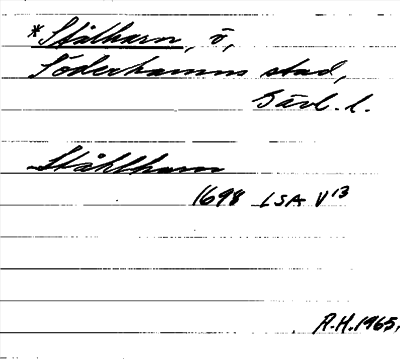 *Stålharn, ö,
Söderhamns stad,
Gävl. l.
Ståhlharn
1698 LSA V13
R.H. 1965.